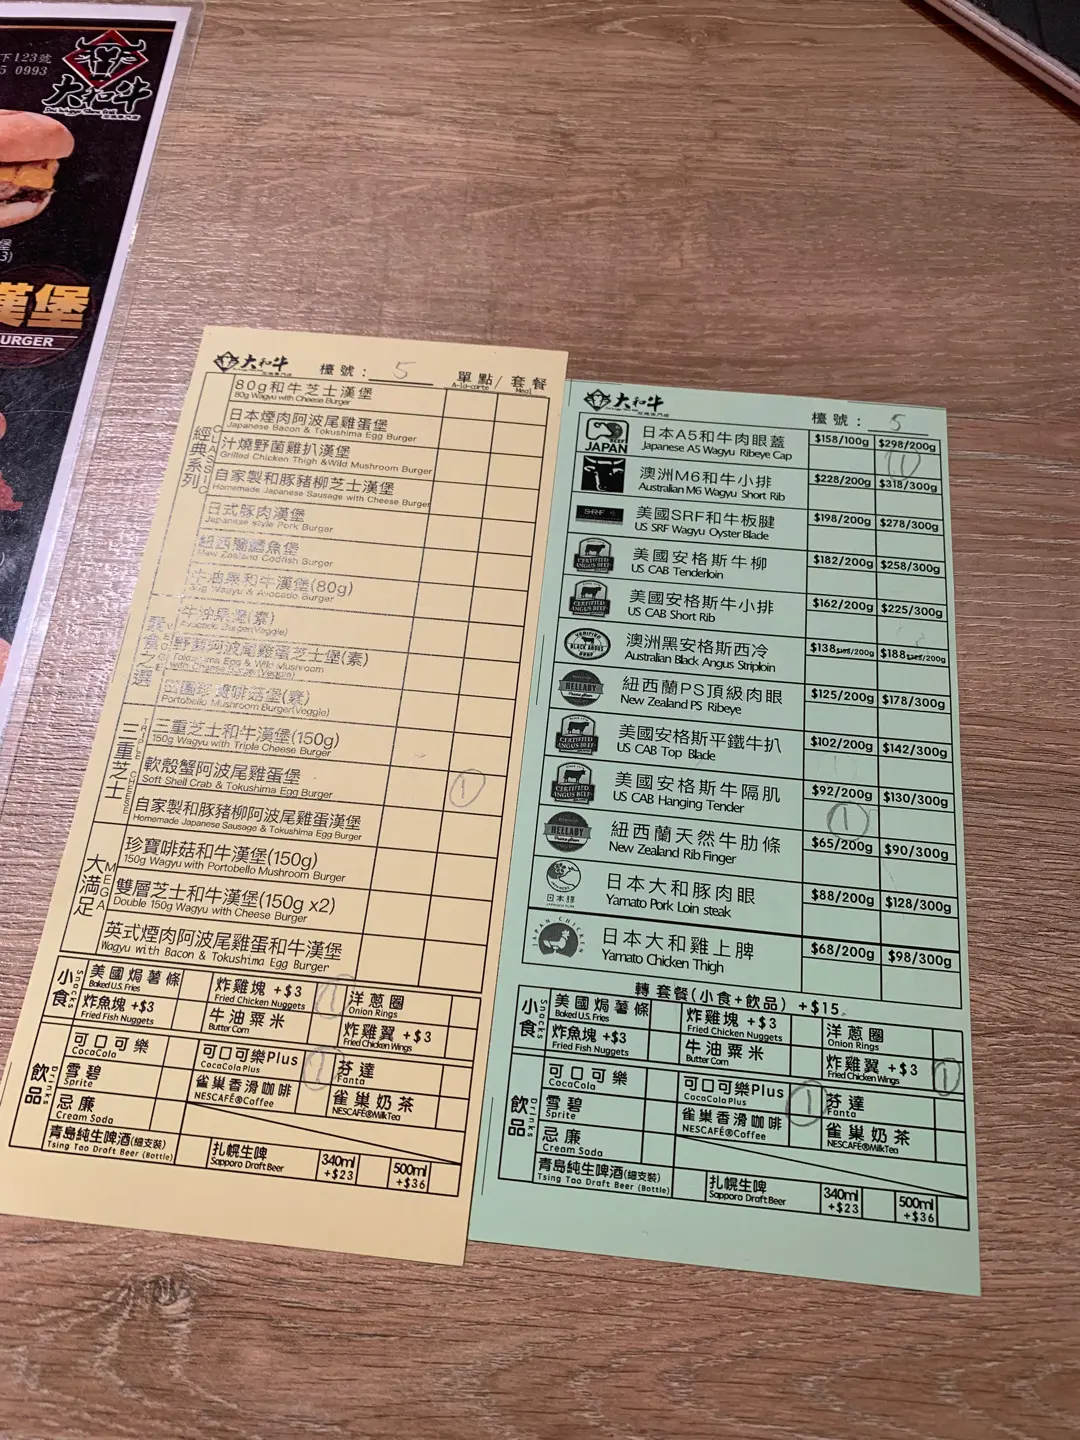 下123號
5 0993
大和牛
3)
漢堡
URGER
大和牛
檯號: 5
單點/套餐
A-la-carte Meal
經典系列
CLASSIC
80g和牛芝士漢堡
80g Wagyu with Cheese Burger
日本煙肉阿波尾雞蛋堡
Japanese Bacon & Tokushima Egg Burger
汁燒野菌雞扒漢堡
Grilled Chicken Thigh &Wild Mushroom Burger
自家製和豚豬柳芝士漢堡
Homemade Japanese Sausage with Cheese Burger
日式豚肉漢堡
Japanese style Pork Burger
紐西蘭鱈魚堡
New Zealand Codfish Burger
牛油果和牛漢堡(80g)
80g Wagyu & Avocado Burger
素食之選
牛油果堡(素)
Avocado Burger(Veggie)
野菌阿波尾雞蛋芝士堡(素)
Tokushima Egg & Wild Mushroom
with Cheese Burger (Veggie)
Portobello Mushroom Burger(Veggie)
三重芝士
TRIPLE CHEESE
三重芝士和牛漢堡(150g)
150g Wagyu with Triple Cheese Burger
軟殼蟹阿波尾雞蛋堡
Soft Shell Crab & Tokushima Egg Burger
1
自家製和豚豬柳阿波尾雞蛋漢堡
Homemade Japanese Sausage & Tokushima Egg Burger
大滿足
MEGA
珍寶啡菇和牛漢堡(150g)
150g Wagyu with Portobello Mushroom Burger
雙層芝士和牛漢堡(150g x2)
Double 150g Wagyu with Cheese Burger
英式煙肉阿波尾雞蛋和牛漢堡
Wagyu with Bacon & Tokushima Egg Burger
小食
Snacks
美國焗薯條
Baked U.S. Fries
炸雞塊 +$3
Fried Chicken Nuggets
1
洋蔥圈
Onion Rings
炸魚塊 +$3
Fried Fish Nuggets
牛油粟米
Butter Corn
炸雞翼 +$3
Fried Chicken Wings
飲品
Drinks
可口可樂
CocaCola
可口可樂Plus
CocaCola Plus
1
芬達
Fanta
雪碧
Sprite
雀巢香滑咖啡
NESCAFÉ®Coffee
雀巢奶茶
NESCAFÉ®MilkTea
忌廉
Cream Soda
青島純生啤酒(細支裝)
Tsing Tao Draft Beer (Bottle)
扎幌生啤
Sapporo Draft Beer
340ml
+$23
500ml
+$36
大和牛
檯號: 5
JAPAN
日本A5和牛肉眼蓋
Japanese A5 Wagyu Ribeye Cap
$158/100g $298/200g
1
澳洲M6和牛小排
Australian M6 Wagyu Short Rib
$228/200g $318/300g
SRF
美國SRF和牛板腱
US SRF Wagyu Oyster Blade
$198/200g $278/300g
CERTIFIED
ANGUS BEEF
美國安格斯牛柳
US CAB Tenderloin
$182/200g $258/300g
CERTIFIED
ANGUS BEEF
美國安格斯牛小排
US CAB Short Rib
$162/200g $225/300g
VERIFIED
BLACK ANGUS
澳洲黑安格斯西冷
Australian Black Angus Striploin
$138 $188
HELLABY
紐西蘭PS頂級肉眼
New Zealand PS Ribeye
$125/200g $178/300g
CERTIFIED
ANGUS BEEF
美國安格斯平鐵牛扒
US CAB Top Blade
$102/200g $142/300g
CERTIFIED
ANGUS BEEF
美國安格斯牛隔肌
US CAB Hanging Tender
$92/200g $130/300g
1
HELLABY
紐西蘭天然牛肋條
New Zealand Rib Finger
$65/200g $90/300g
日本豚
日本大和豚肉眼
Yamato Pork Loin steak
$88/200g $128/300g
JAPAN CHICKEN
日本大和雞上脾
Yamato Chicken Thigh
$68/200g $98/300g
轉 套餐(小食+飲品) +$15
小食
Snacks
美國焗薯條
Baked U.S. Fries
炸雞塊 +$3
Fried Chicken Nuggets
洋蔥圈
Onion Rings
炸魚塊 +$3
Fried Fish Nuggets
牛油粟米
Butter Corn
炸雞翼 +$3
Fried Chicken Wings
1
飲品
Drinks
可口可樂
CocaCola
可口可樂Plus
CocaCola Plus
1
芬達
Fanta
雪碧
Sprite
雀巢香滑咖啡
NESCAFÉ®Coffee
雀巢奶茶
NESCAFÉ®MilkTea
忌廉
Cream Soda
青島純生啤酒(細支裝)
Tsing Tao Draft Beer (Bottle)
扎幌生啤
Sapporo Draft Beer
340ml
+$23
500ml
+$36